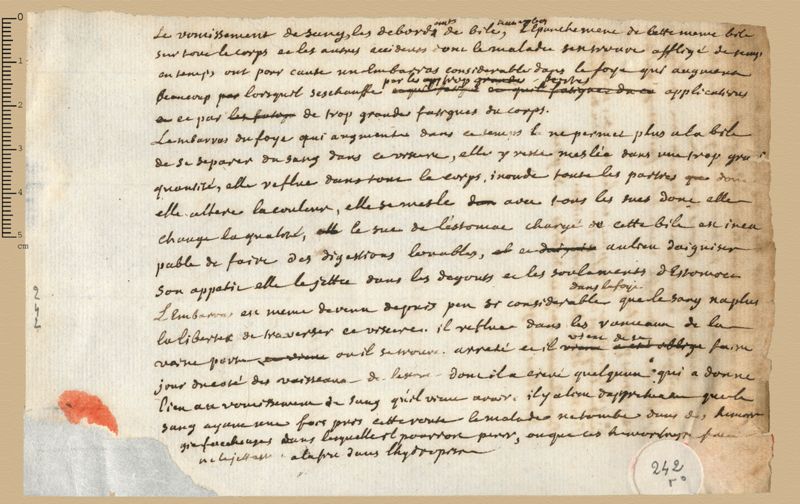 Le vomissement de sang, les debordemts de bile, l'Epanchement de cette meme bile
sur tout le corps et les autres accidents dont le malade se trouve affligé de tems
en temps ont pour cause un Embarras considerable dans le foye qui augmente
beaucoup lorsquil seschauffe par les trop grandes applications
et par de trop grandes fatigues du corps.
Lembarras du foye qui augmente dans ce temps la ne permet plus a la bile
de se separer du sang dans ce viscere, elle y reste meslée dans une trop gra
quantité, elle reflue dans tout le corps, inonde toutes les parties dont
elle altere la couleur, elle se mesle avec tous les sucs dont elle
change la qualité, le suc de l'estomac chargé de cette bile est inca
pable de faire des digestions louables, et au lieu d'aiguiser
son appetit elle le jette dans les degouts et les soulements d'Estomac
L'Embarras est meme devenu depuis peu si considerable dans le foye que le sang na plus
la liberté de traverser ce viscere. il reflue dans les vaisseaux de la
vaine porte ou il se trouve arreté et il vient de se faire
jour du costé des vaisseaux de lestomac dont il a crevé quelquun qui a donné
lieu au vomissement de sang quil vient avoir. il y a lieu dapprehender que le
sang ayant une fois pris cette route le malade ne tombe dans des hemorr
gies facheuses dans lesquelles il pourroit perir, ou que ces hemorragies
ne le jettent a la fin dans l'hydropisie
242
242
r°
0
1
2
3
4
5
cm